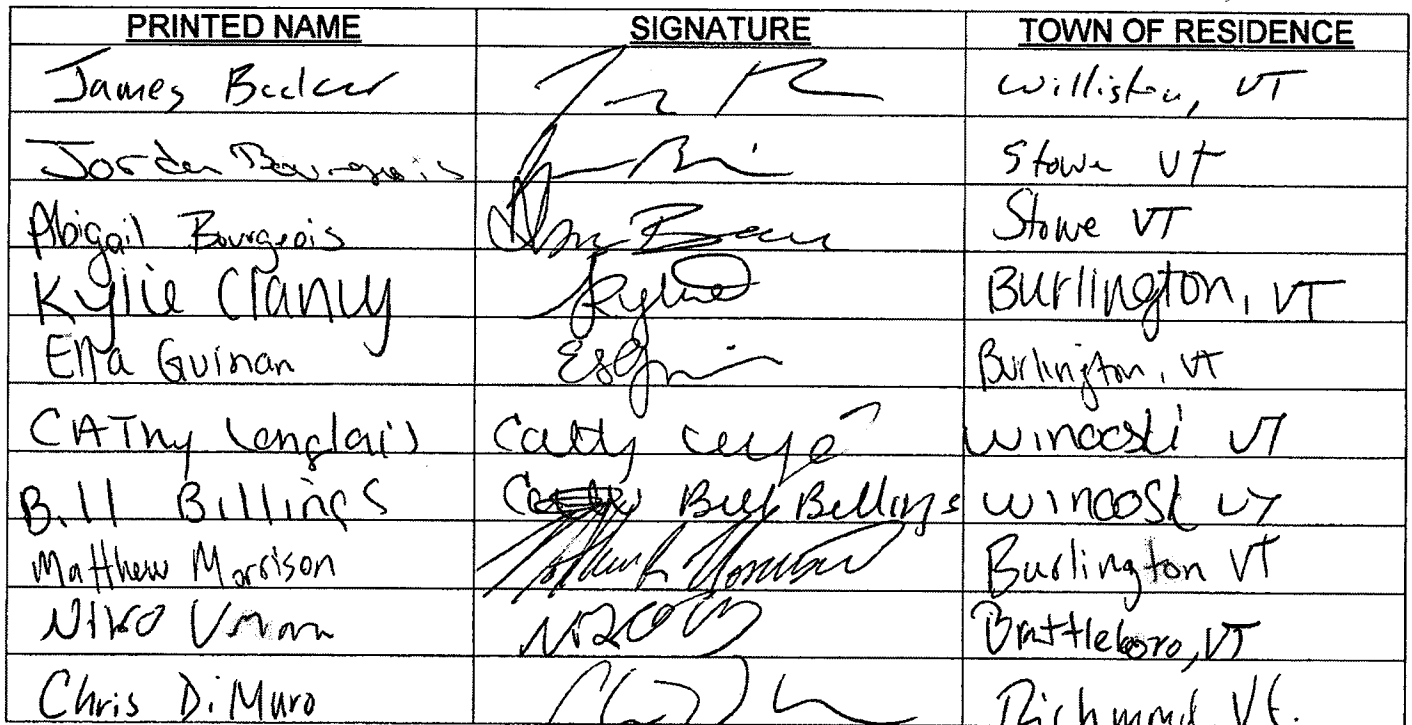 PRINTED NAME SIGNATURE TOWN OF RESIDENCE
James Williston, VT
Jordan Bourgeois Stowe Vt
Abigail Bourgeois Stowe VT
Kylie Clancy Kylie Burlington, VT
Ella Guinan Burlington, VT
CAThy Langlais Cathy Winooski VT
Bill Billings Bill Billings Winooski VT
Matthew Morrison Matthew Morrison Burlington VT
Niko Brattleboro, VT
Chris DiMuro Richmond Vt.